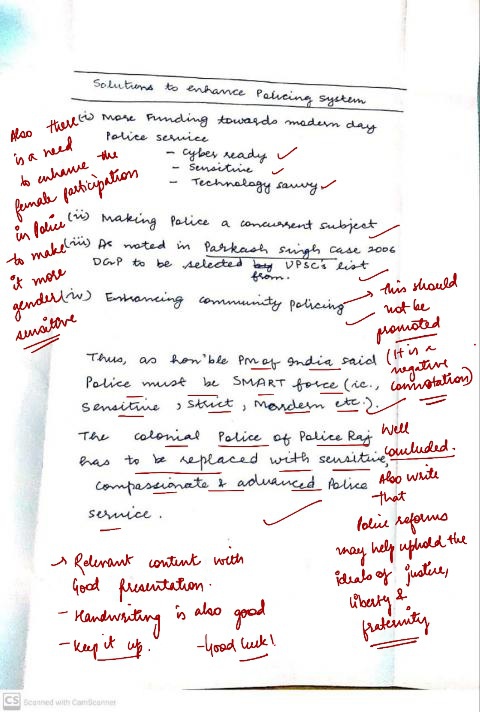 Solutions to enhance Policing System
(i) More Funding towards modern day
Police service
- Cyber ready
- Sensitive
- Technology savvy
(ii) Making Police a concurrent subject
(iii) As noted in Parkash Singh Case 2006
DGP to be selected by UPSC's list
from.
(iv) Enhancing community policing
Thus, as hon'ble PM of India said
Police must be SMART force (i.e.,
Sensitive, Strict, Mordern etc.).
The colonial Police of Police Raj
has to be replaced with sensitive,
compassionate & advanced Police
service.
Also there
is a need
to enhance the
female participation
in Police
to make
it more
gender
sensitive
this should
not be
promoted
(It is a
negative
connotation)
Well
concluded.
Also write
that
Police reforms
may help uphold the
ideals of justice,
liberty &
fraternity
→ Relevant content with
Good presentation.
- Handwriting is also good
- Keep it up. - Good luck!
CS Scanned with CamScanner